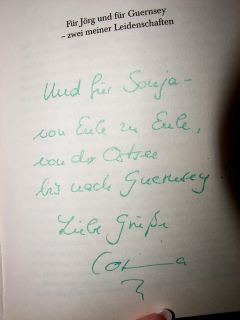 Für Jörg und für Guernsey
– zwei meiner Leidenschaften
Und für Sonja –
von Eule zu Eule,
von der Ostsee
bis nach Guernsey
Liebe Grüße